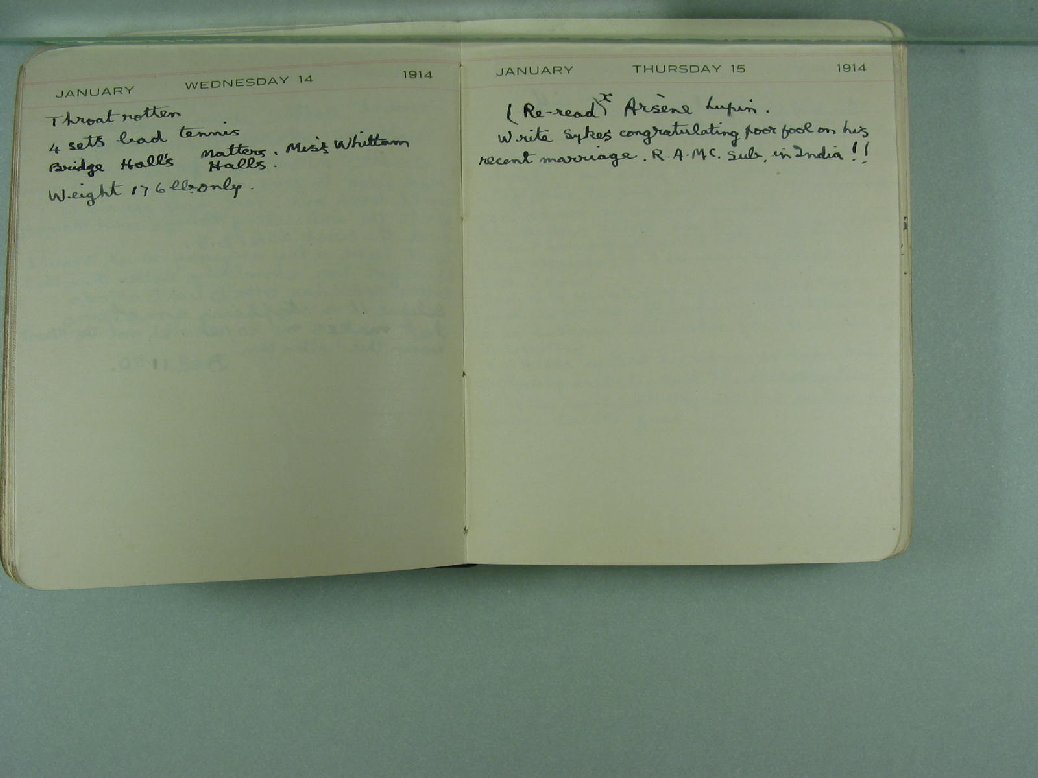 JANUARY WEDNESDAY 14 1914
Throat rotten
4 sets bad tennis
Bridge Hall's Matters. Miss Whittam
Halls.
Weight 176 lbs only.
JANUARY THURSDAY 15 1914
(Re-read)x Arsène Lupin.
Write Sykes congratulating poor fool on his
recent marriage. R.A.M.C. Sub. in India!!